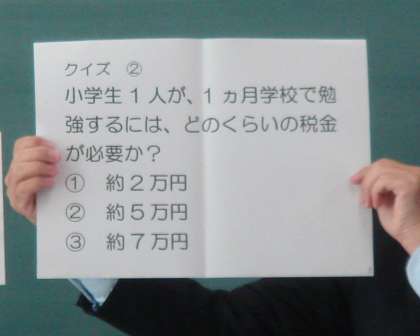 クイズ ②
小学生1人が、1ヵ月学校で勉
強するには、どのくらいの税金
が必要か？
① 約2万円
② 約5万円
③ 約7万円